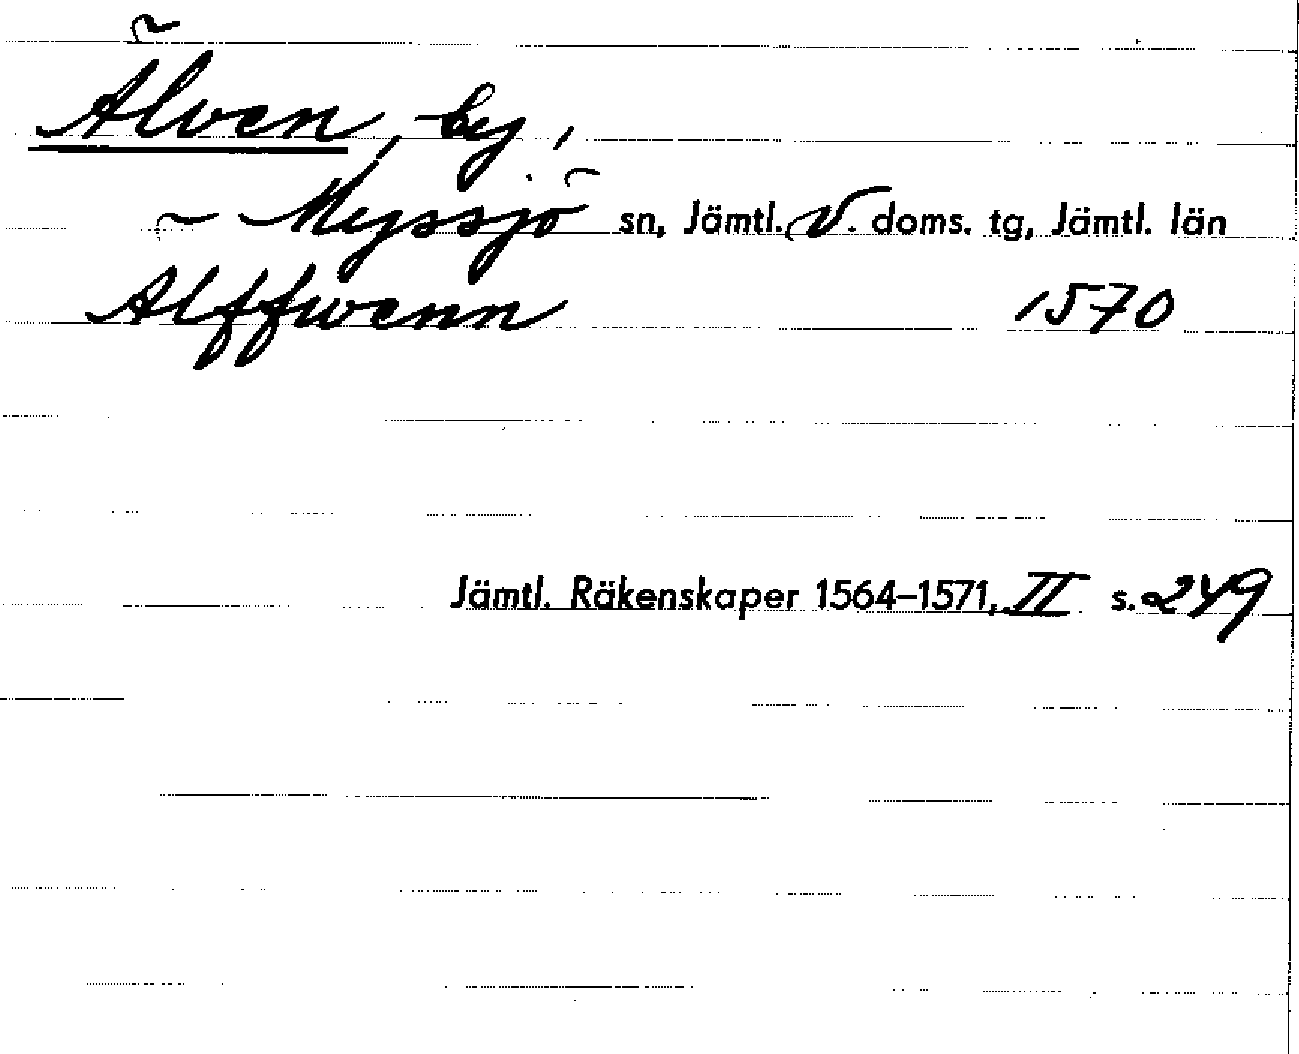 Älven, by,
Myssjö sn, Jämtl. V. doms. tg, Jämtl. län
Alffwenn 1570
Jämtl. Räkenskaper 1564–1571, II s. 249